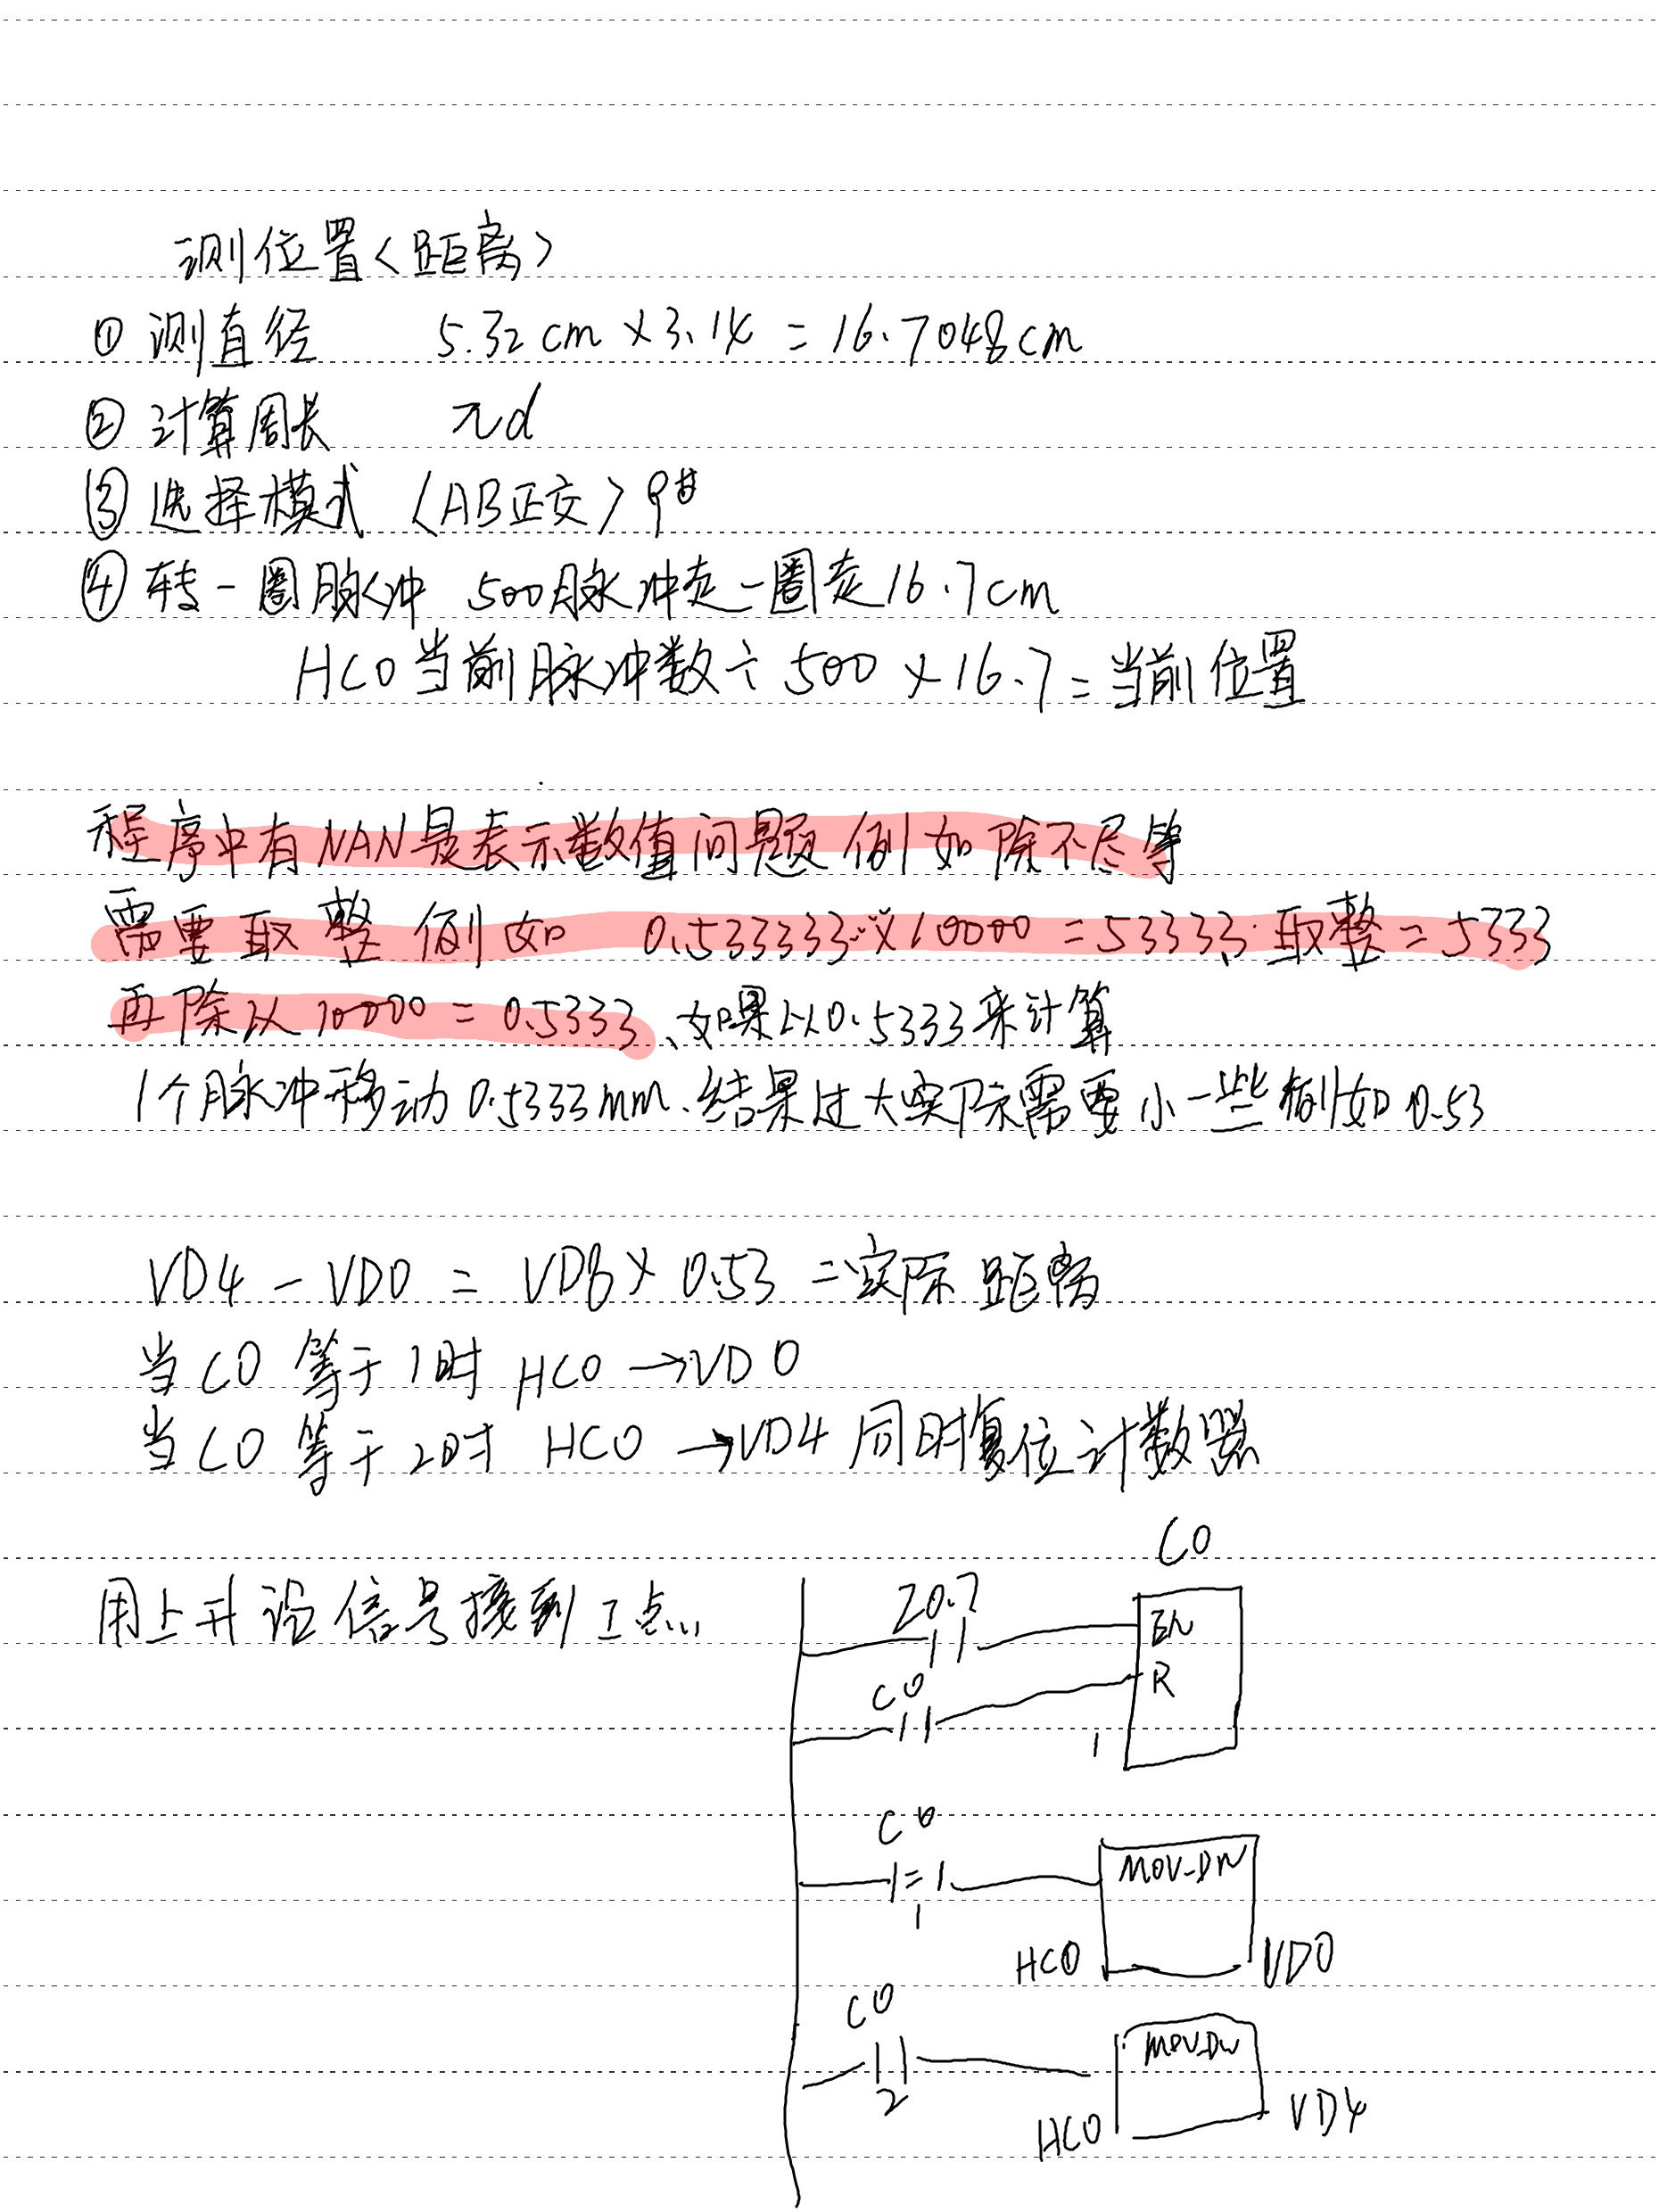 测位置〈距离〉
① 测直径 5.32cm×3.14=16.7048cm
② 计算周长 πd
③ 选择模式〈AB正交〉9#
④ 转一圈脉冲 500脉冲走一圈走16.7cm
HC0当前脉冲数÷500×16.7=当前位置
程序中有NAN是表示数值问题 例如除不尽等
需要取整 例如 0.533333…×10000=5333.3.取整=5333
再除以10000=0.5333、如果以0.5333来计算
1个脉冲移动0.5333mm.结果过大实际需要小一些例如0.53
VD4-VD0=VD8×0.53=实际距离
当C0等于1时 HC0→VD0
当C0等于2时 HC0→VD4 同时复位计数器
C0
用上升沿信号接到I点...
I0.7
EN
C0
R
1
C0
=
1
MOV-DW
HC0 VD0
C0
2
MOV-DW
HC0 VD4